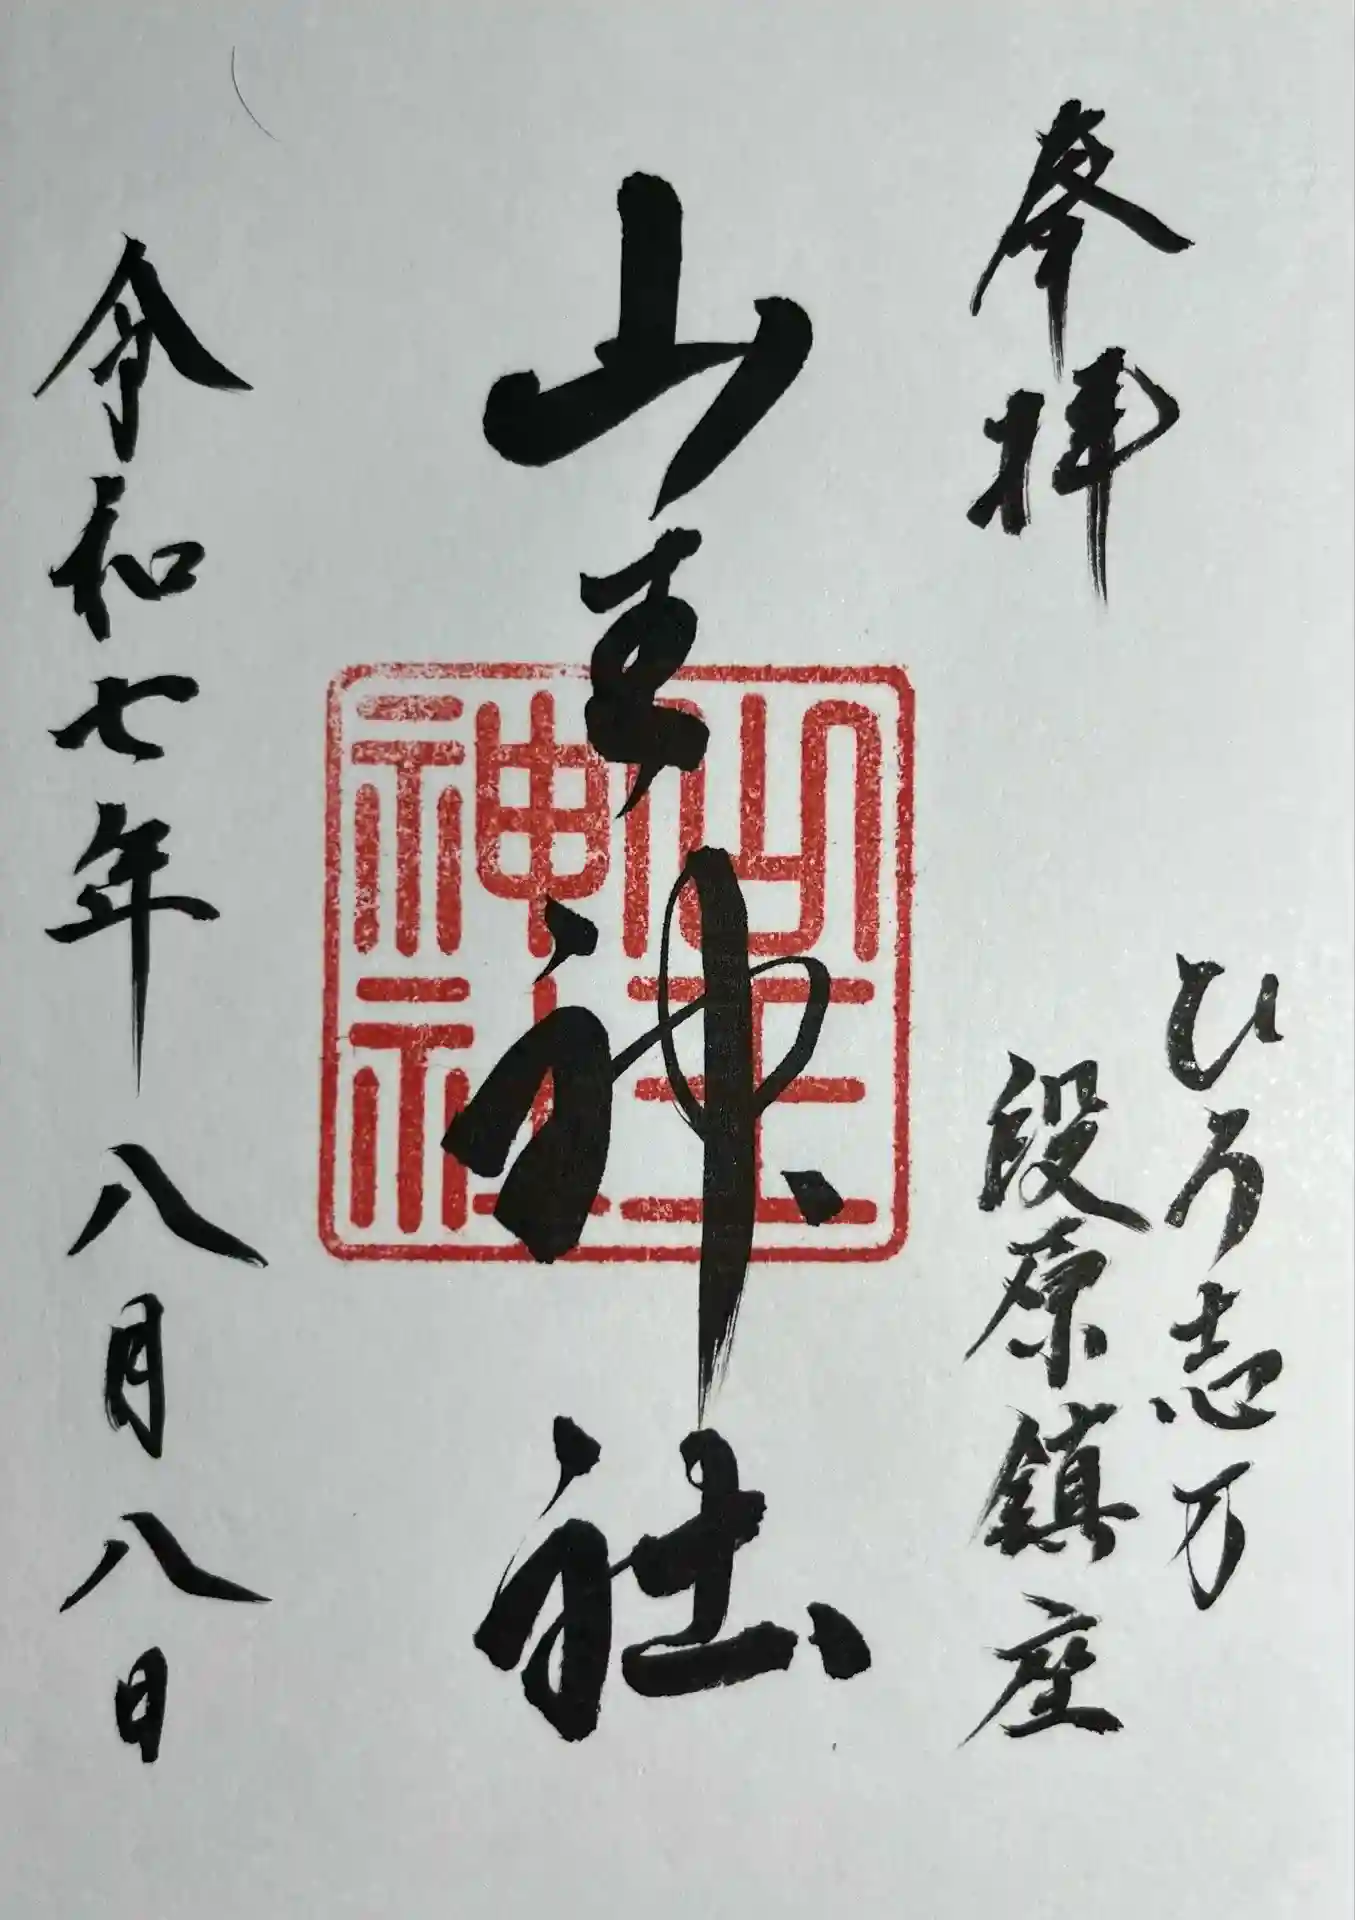 奉拝
ひろ志万
段原鎮座
山王神社
山王
神社
令和七年 八月 八日